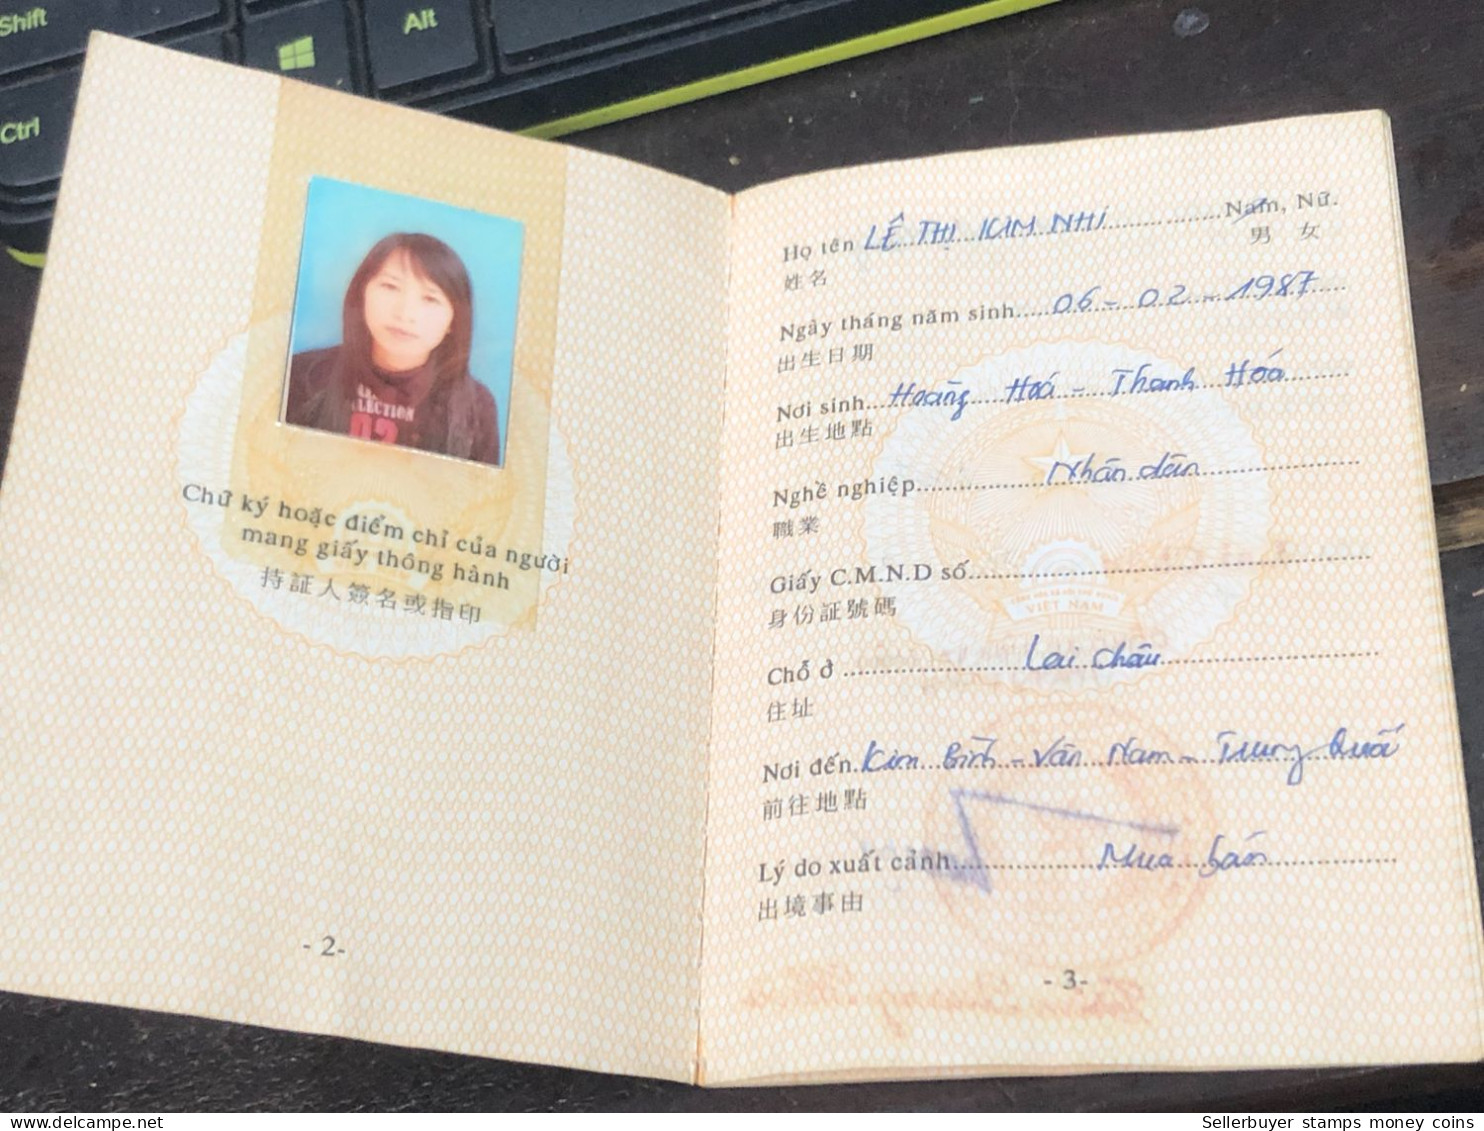 Shift
Alt
Ctrl
Chữ ký hoặc điểm chỉ của người
mang giấy thông hành
持証人簽名或指印
- 2-
Họ tên LÊ THỊ KIM NHI Nam, Nữ.
姓名 男 女
Ngày tháng năm sinh 06 - 02 - 1987
出生日期
Nơi sinh Hoằng Hoá - Thanh Hoá
出生地點
Nghề nghiệp Nhân dân
職業
Giấy C.M.N.D số
身份証號碼
VIỆT NAM
Chỗ ở Lai Châu
住址
Nơi đến Kim Bình - Vân Nam - Trung Quốc
前往地點
Lý do xuất cảnh Mua bán
出境事由
- 3-
delcampe.net
Sellerbuyer stamps money coins